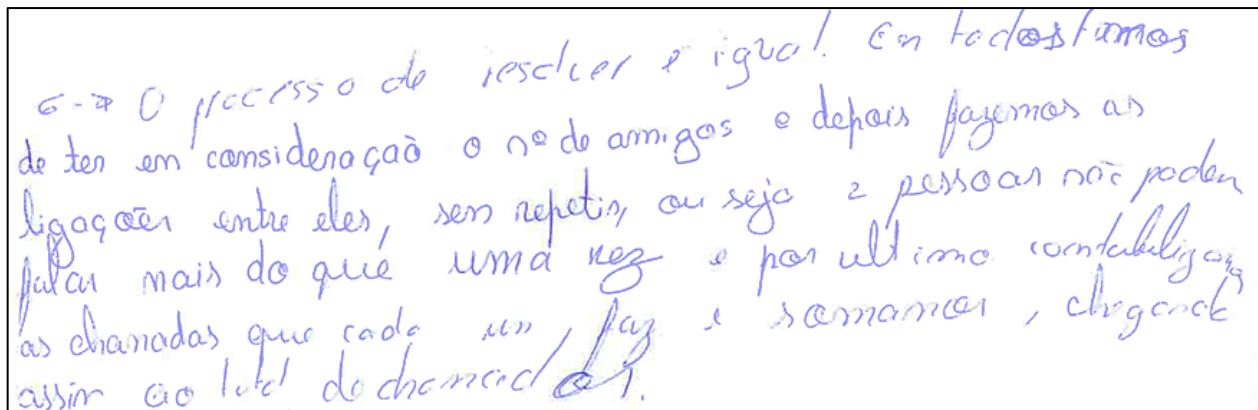 6-> O processo de resolver e igual. Em todos temos
de ter em consideração o nº de amigos e depois fazemos as
ligações entre eles, sem repetir, ou seja 2 pessoas não podem
falar mais do que uma vez e por ultimo contabilizamos
as chamadas que cada um faz e somamos, chegando
assim ao total de chamadas.